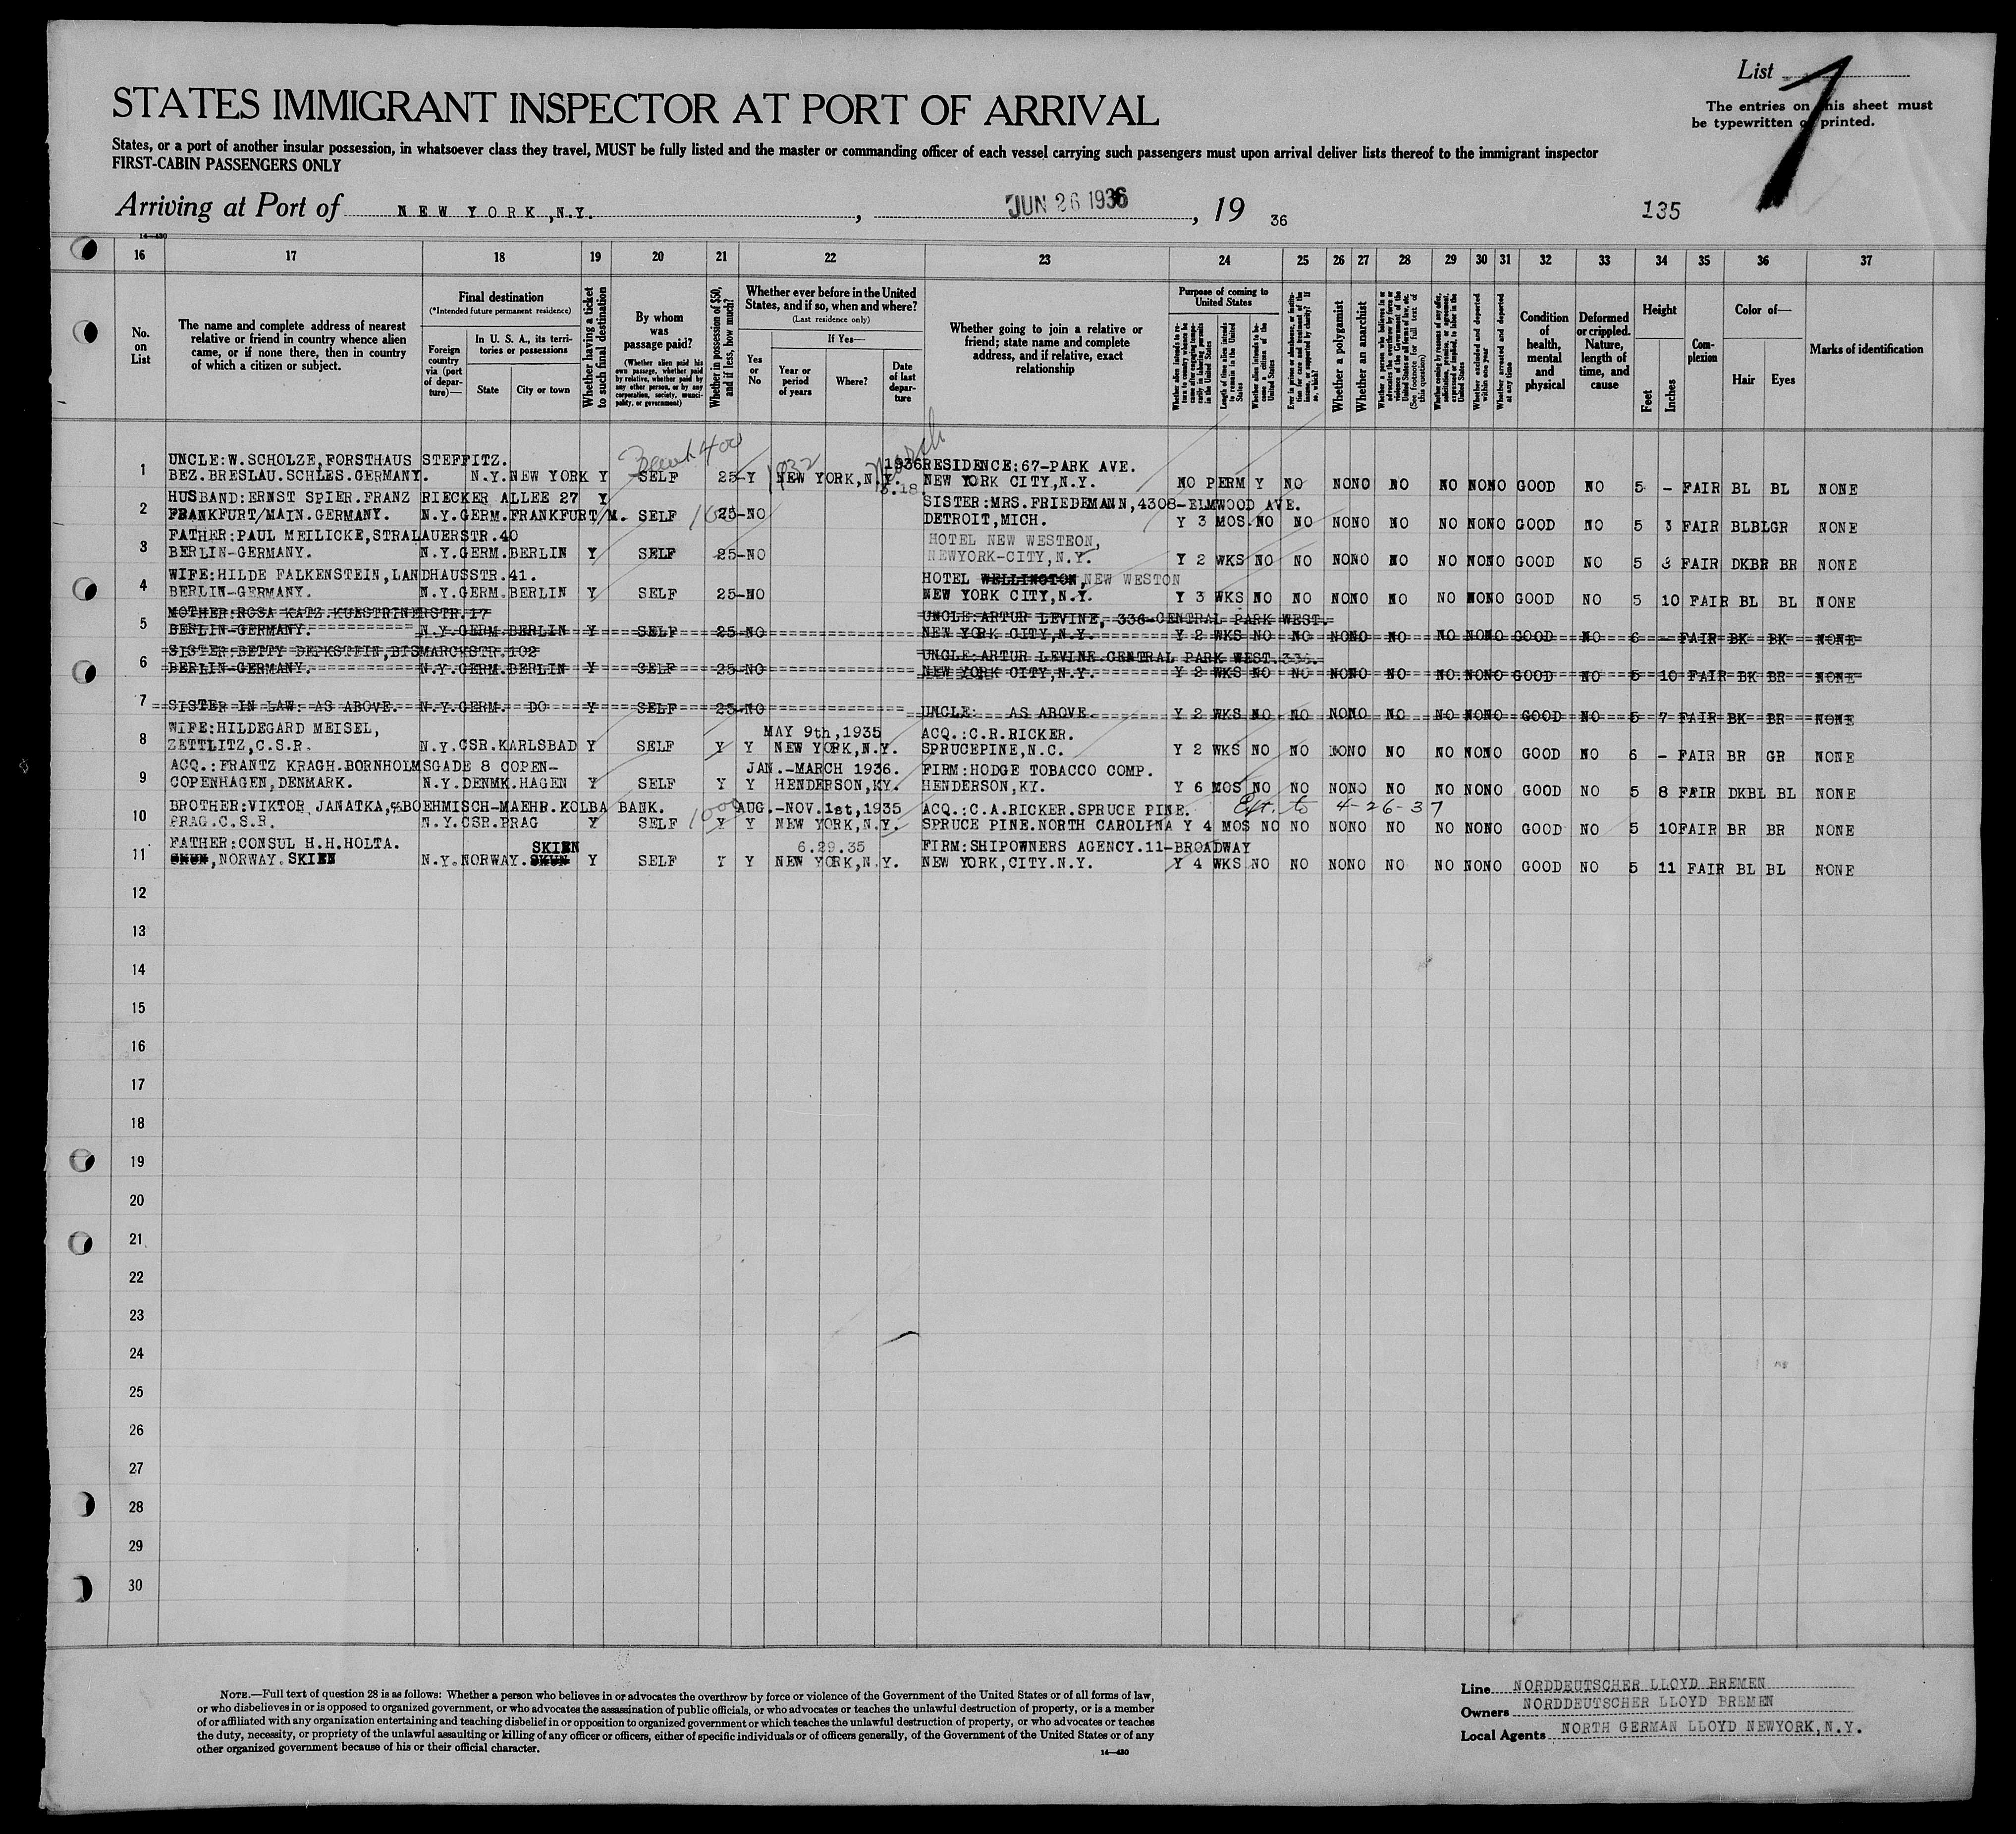 List 7
STATES IMMIGRANT INSPECTOR AT PORT OF ARRIVAL
The entries on this sheet must
be typewritten or printed.
States, or a port of another insular possession, in whatsoever class they travel, MUST be fully listed and the master or commanding officer of each vessel carrying such passengers must upon arrival deliver lists thereof to the immigrant inspector
FIRST-CABIN PASSENGERS ONLY
Arriving at Port of NEW YORK, N.Y. , JUN 26 1936 , 19 36 135
14-430
16 17 18 19 20 21 22 23 24 25 26 27 28 29 30 31 32 33 34 35 36 37
No. on List
The name and complete address of nearest relative or friend in country whence alien came, or if none there, then in country of which a citizen or subject.
Final destination
(*Intended future permanent residence)
Foreign country via (port of departure)—
In U. S. A., its territories or possessions
State
City or town
Whether having a ticket to such final destination
By whom was passage paid?
(Whether alien paid his own passage, whether paid by relative, whether paid by any other person, or by any corporation, society, municipality, or government)
Whether in possession of $50, and if less, how much?
Whether ever before in the United States, and if so, when and where?
(Last residence only)
Yes or No
If Yes—
Year or period of years
Where?
Date of last departure
Whether going to join a relative or friend; state name and complete address, and if relative, exact relationship
Purpose of coming to United States
Length of time alien intends to remain in the United States
Whether alien intends to become a citizen of the United States
Whether a polygamist
Whether an anarchist
Whether excluded and deported within one year
Whether arrested and deported at any time
Condition of health, mental and physical
Deformed or crippled. Nature, length of time, and cause
Height
Feet
Inches
Complexion
Color of—
Hair
Eyes
Marks of identification
UNCLE:W.SCHOLZE,FORSTHAUS STEFFITZ. 400 1932 March 1936 RESIDENCE:67-PARK AVE.
1 BEZ.BRESLAU.SCHLES.GERMANY. N.Y.NEW YORK Y SELF 25-Y NEW YORK,N.Y. NEW YORK CITY,N.Y. NO PERM Y NO NONO NO NO NONO GOOD NO 5 - FAIR BL BL NONE
HUSBAND:ERNST SPIER.FRANZ RIECKER ALLEE 27 Y SISTER:MRS.FRIEDEMANN,4308-ELMWOOD AVE.
2 FRANKFURT/MAIN.GERMANY. N.Y.GERM.FRANKFURT/M. SELF 25-NO DETROIT,MICH. Y 3 MOS.NO NO NONO NO NO NONO GOOD NO 5 3 FAIR BLBLGR NONE
FATHER:PAUL MEILICKE,STRALAUERSTR.40 HOTEL NEW WESTEON,
3 BERLIN-GERMANY. N.Y.GERM.BERLIN Y SELF 25-NO NEWYORK-CITY,N.Y. Y 2 WKS NO NO NONO NO NO NONO GOOD NO 5 3 FAIR DKBR BR NONE
WIFE:HILDE FALKENSTEIN,LANDHAUSSTR.41. HOTEL WELLINGTON,NEW WESTON
4 BERLIN-GERMANY. N.Y.GERM.BERLIN Y SELF 25-NO NEW YORK CITY,N.Y. Y 3 WKS NO NO NONO NO NO NONO GOOD NO 5 10 FAIR BL BL NONE
MOTHER:ROSA KATZ.KUESTRINERSTR.17 UNCLE:ARTUR LEVINE, 336-CENTRAL PARK WEST.
5 BERLIN-GERMANY. N.Y.GERM.BERLIN Y SELF 25-NO NEW YORK CITY,N.Y. Y 2 WKS NO NO NONO NO NO NONO GOOD NO 6 - FAIR BK BK NONE
SISTER:BETTY DEPKSTEIN,BISMARCKSTR.102 UNCLE:ARTUR LEVINE.CENTRAL PARK WEST.336.
6 BERLIN-GERMANY. N.Y.GERM.BERLIN Y SELF 25-NO NEW YORK CITY,N.Y. Y 2 WKS NO NO NONO NO NO.NONO GOOD NO 5 10 FAIR BK BR NONE
7 SISTER IN LAW: AS ABOVE. N.Y.GERM. DO Y SELF 25-NO UNCLE: AS ABOVE. Y 2 WKS NO NO NONO NO NO NONO GOOD NO 5 7 FAIR BK BR NONE
WIFE:HILDEGARD MEISEL, MAY 9th,1935 ACQ.:C.R.RICKER.
8 ZETTLITZ,C.S.R. N.Y.CSR.KARLSBAD Y SELF Y Y NEW YORK,N.Y. SPRUCEPINE,N.C. Y 2 WKS NO NO NONO NO NO NONO GOOD NO 6 - FAIR BR GR NONE
ACQ.:FRANTZ KRAGH.BORNHOLMSGADE 8 COPEN- JAN.-MARCH 1936. FIRM:HODGE TOBACCO COMP.
9 COPENHAGEN,DENMARK. N.Y.DENMK.HAGEN Y SELF Y Y HENDERSON,KY. HENDERSON,KY. Y 6 MOS NO NO NONO NO NO NONO GOOD NO 5 8 FAIR DKBL BL NONE
BROTHER:VIKTOR JANATKA,%BOEHMISCH-MAEHR.KOLBA BANK. 1000 AUG.-NOV.1st,1935 ACQ.:C.A.RICKER.SPRUCE PINE. Ext. to 4-26-37
10 PRAG.C.S.R. N.Y.CSR.PRAG Y SELF Y Y NEW YORK,N.Y. SPRUCE PINE.NORTH CAROLINA Y 4 MOS NO NO NONO NO NO NONO GOOD NO 5 10FAIR BR BR NONE
FATHER:CONSUL H.H.HOLTA. SKIEN 6.29.35 FIRM:SHIPOWNERS AGENCY.11-BROADWAY
11 SKUN,NORWAY.SKIEN N.Y.NORWAY.SKUN Y SELF Y Y NEW YORK,N.Y. NEW YORK,CITY.N.Y. Y 4 WKS NO NO NONO NO NO NONO GOOD NO 5 11 FAIR BL BL NONE
12
13
14
15
16
17
18
19
20
21
22
23
24
25
26
27
28
29
30
NOTE.—Full text of question 28 is as follows: Whether a person who believes in or advocates the overthrow by force or violence of the Government of the United States or of all forms of law,
or who disbelieves in or is opposed to organized government, or who advocates the assassination of public officials, or who advocates or teaches the unlawful destruction of property, or is a member
of or affiliated with any organization entertaining and teaching disbelief in or opposition to organized government or which teaches the unlawful destruction of property, or who advocates or teaches
the duty, necessity, or propriety of the unlawful assaulting or killing of any officer or officers, either of specific individuals or of officers generally, of the Government of the United States or of any
other organized government because of his or their official character.
14-430
Line NORDDEUTSCHER LLOYD BREMEN
Owners NORDDEUTSCHER LLOYD BREMEN
Local Agents NORTH GERMAN LLOYD NEWYORK,N.Y.